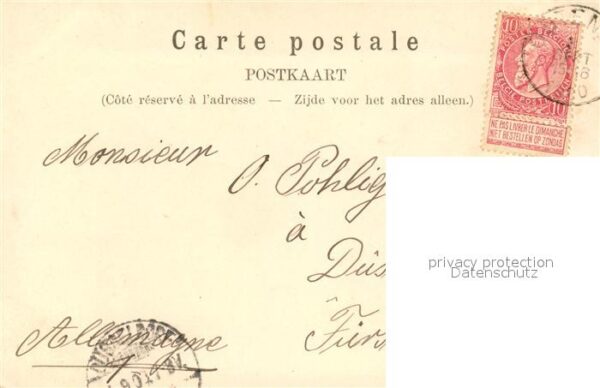 Carte postale
POSTKAART
(Côté réservé à l'adresse — Zijde voor het adres alleen.)
10
10
NE PAS LIVRER LE DIMANCHE
NIET BESTELLEN OP ZONDAG
Monsieur
O. Pohlig
à
Düs
Fürs
Allemagne
privacy protection
Datenschutz